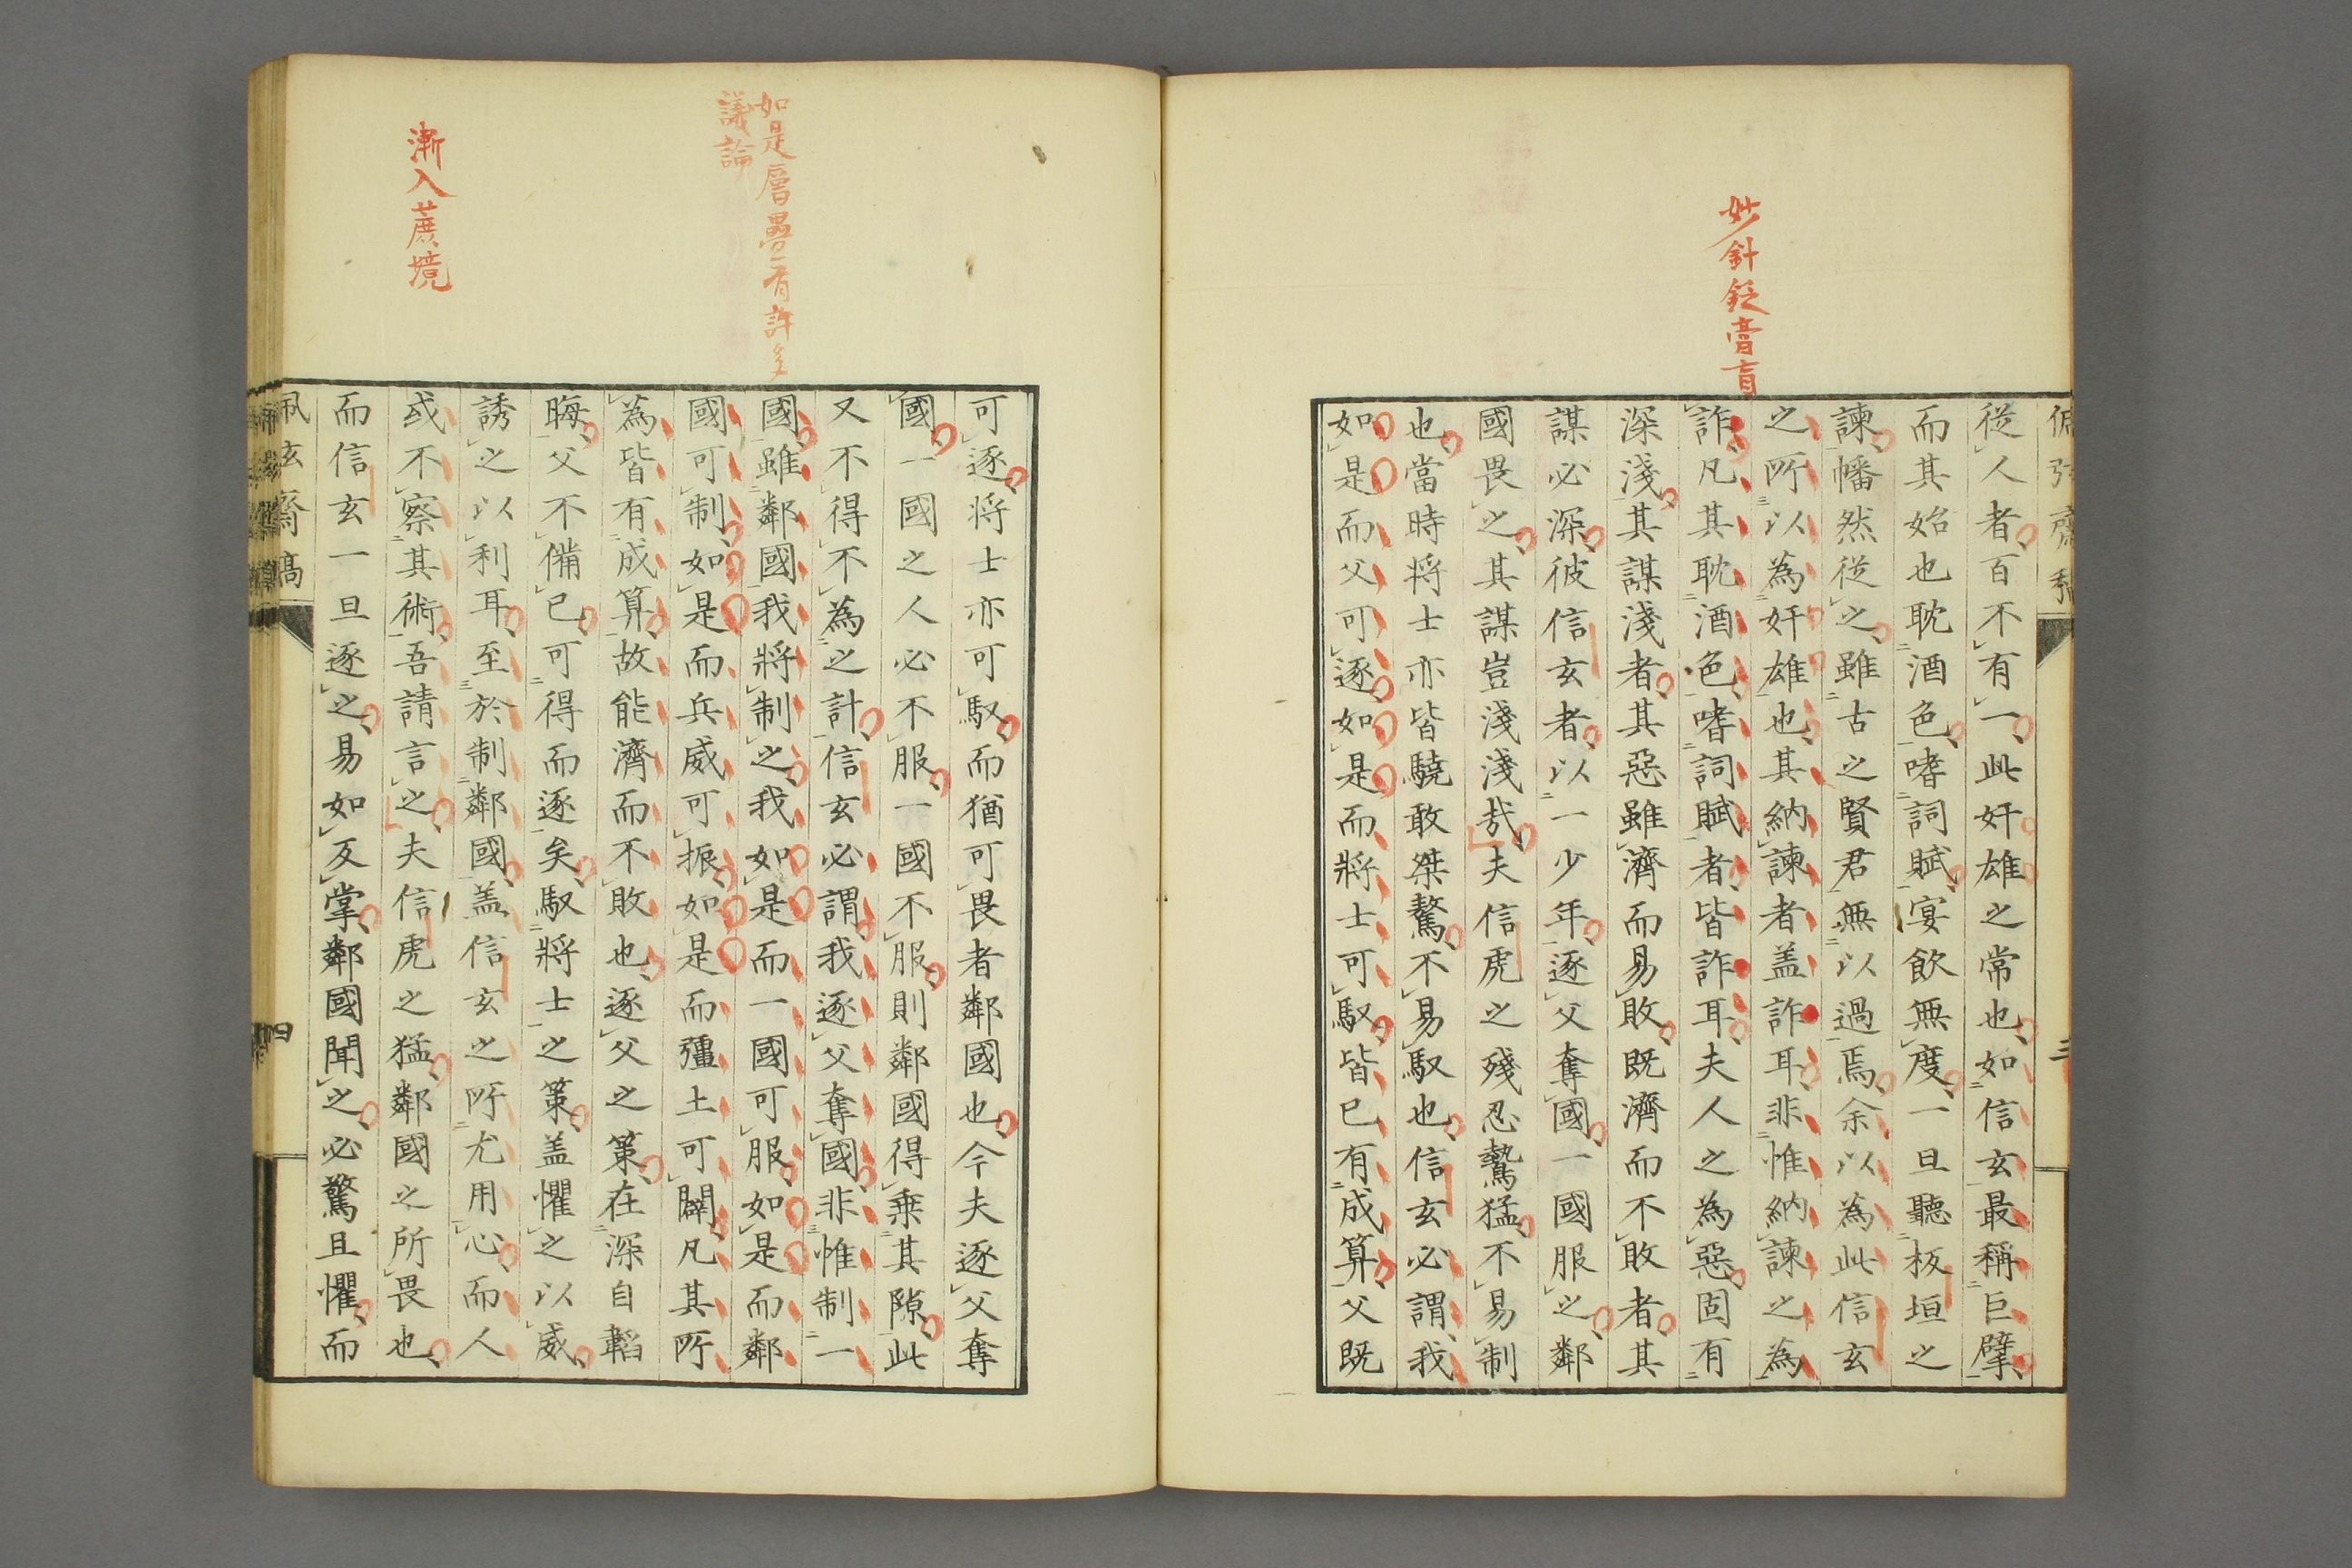 妙針鋎膏肓
從人者百不有一此奸雄之常也如信玄最稱巨擘
而其始也耽酒色嗜詞賦宴飲無度一旦聽板垣之
諫幡然從之雖古之賢君無以過焉余以為此信玄
之所以為奸雄也其納諫者盖詐耳非惟納諫之為
詐凡其耽酒色嗜詞賦者皆詐耳夫人之為惡固有
深淺其謀淺者其惡雖濟而易敗既濟而不敗者其
謀必深彼信玄者以一少年逐父奪國一國服之鄰
國畏之其謀豈淺淺㢤夫信虎之殘忍鷙猛不易制
也當時将士亦皆驍敢桀驁不易馭也信玄必謂我
如是而父可逐如是而將士可馭皆已有成算父既
三
如是層疊有許多
議論
漸入蔗境
可逐将士亦可馭而猶可畏者鄰國也今夫逐父奪
國一國之人必不服一國不服則鄰國得乗其隙此
又不得不為之計信玄必謂我逐父奪國非惟制一
國雖鄰國我將制之我如是而一國可服如是而鄰
國可制如是而兵威可振如是而彊土可闢凡其所
為皆有成算故能濟而不敗也逐父之策在深自韜
晦父不備已可得而逐矣馭將士之策盖懼之以威
誘之以利耳至於制鄰國盖信玄之所尤用心而人
或不察其術吾請言之夫信虎之猛鄰國之所畏也
而信玄一旦逐之易如反掌鄰國聞之必驚且懼而
佩弦齋稿
四